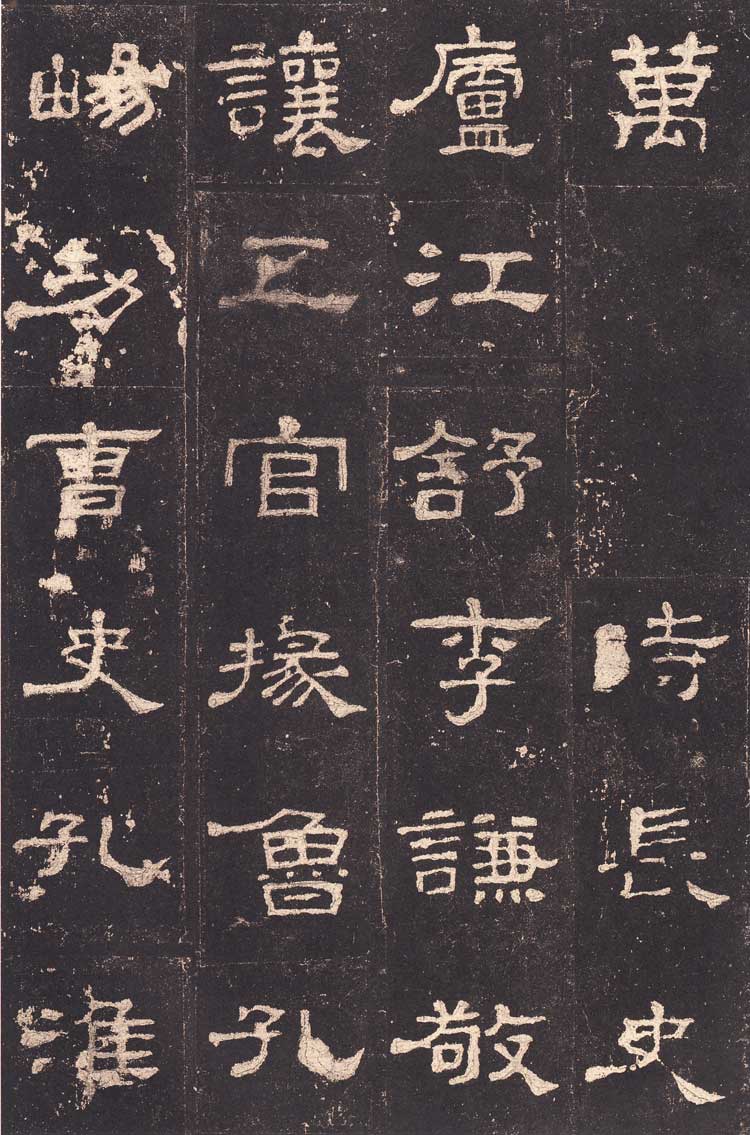 萬 時長史
廬江舒李謙敬
讓五官掾魯孔
暘功曹史孔淮